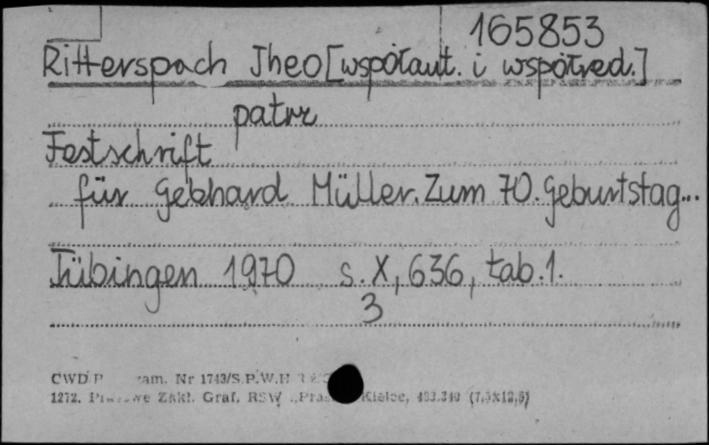 165853
Ritterspach Theo [współaut. i współred.]
patrz
Festschrift
für Gebhard Müller. Zum 70. Geburtstag...
Tübingen 1970 s. X, 636, tab. 1.
3
CWD P am. Nr 1743/S.P.W.H
1272. we Zakł. Graf. RSW „Pras Kielce, (7,5x12,5)